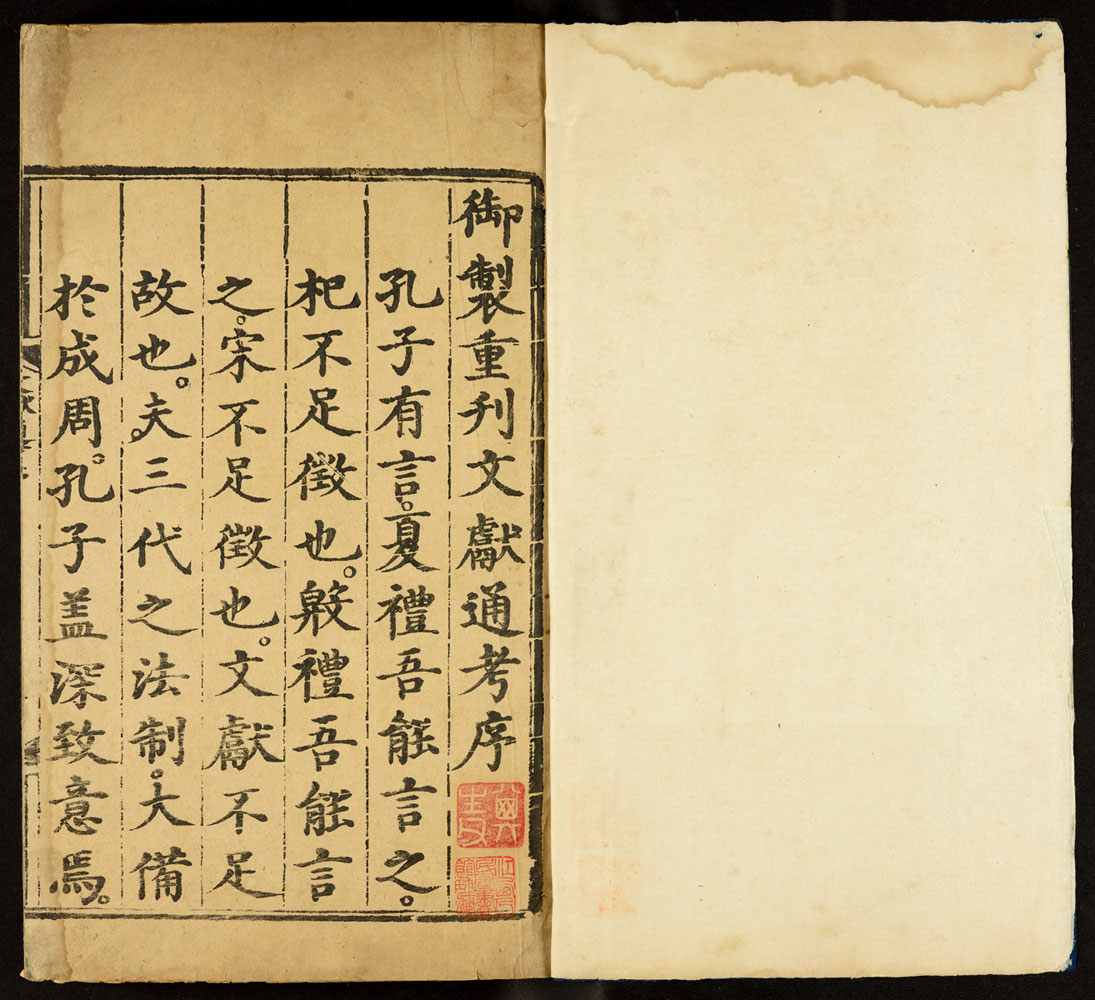 御製重刋文獻通考序
孔子有言。夏禮吾能言之。
杞不足徵也。殷禮吾能言
之。宋不足徵也。文獻不足
故也。夫。三代之法制。大備
於成周。孔子盖深致意焉。